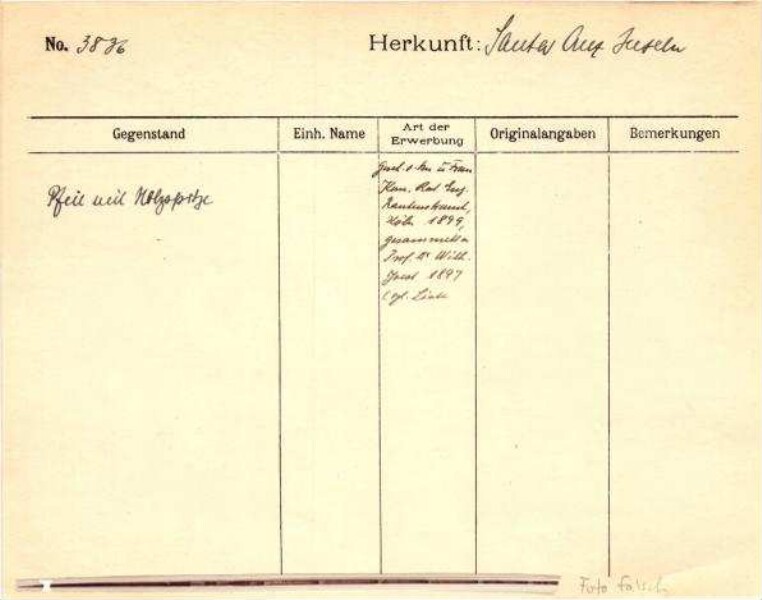 No. 3876
Herkunft: Santa Cruz Inseln
Gegenstand
Einh. Name
Art der
Erwerbung
Originalangaben
Bemerkungen
Pfeil mit Holzspitze
Gesch. v. Hrn u Frau
Kom. Rat Eug.
Rautenstrauch,
Köln 1899,
gesammelt v.
Prof. Dr Wilh.
Joest 1897
Foto falsch